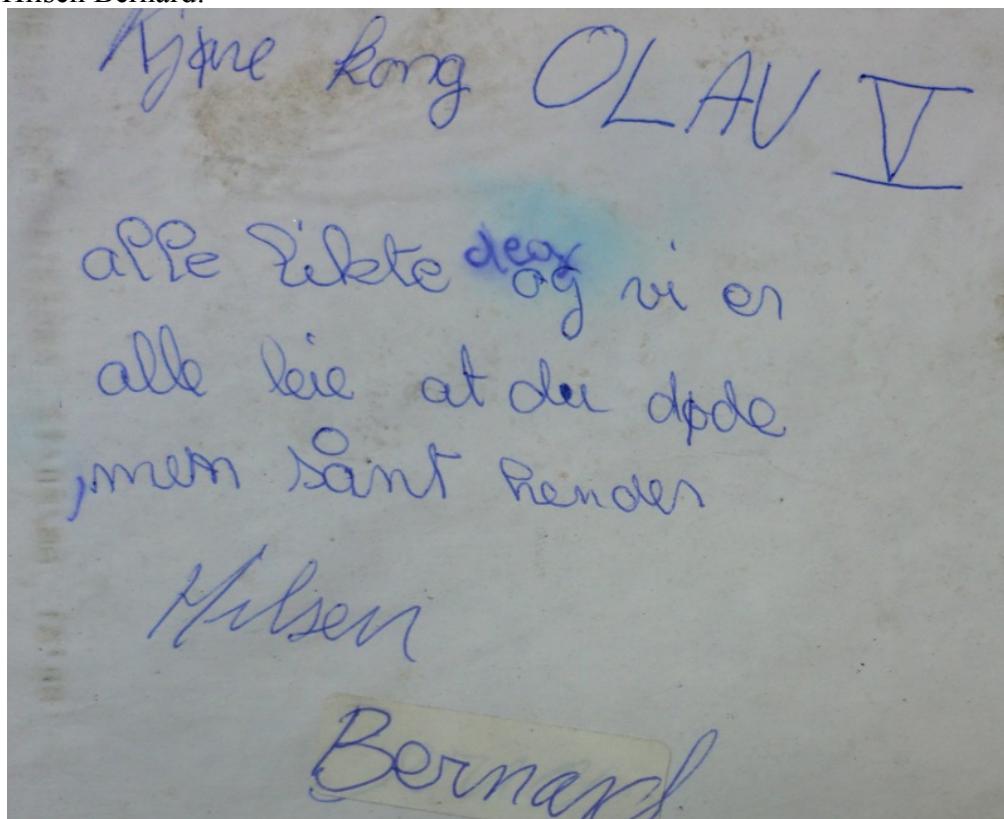 Hilsen Bernard.
Kjære kong OLAV V
alle likte deg og vi er
alle leie at du døde
,men sånt hender
Hilsen
Bernard